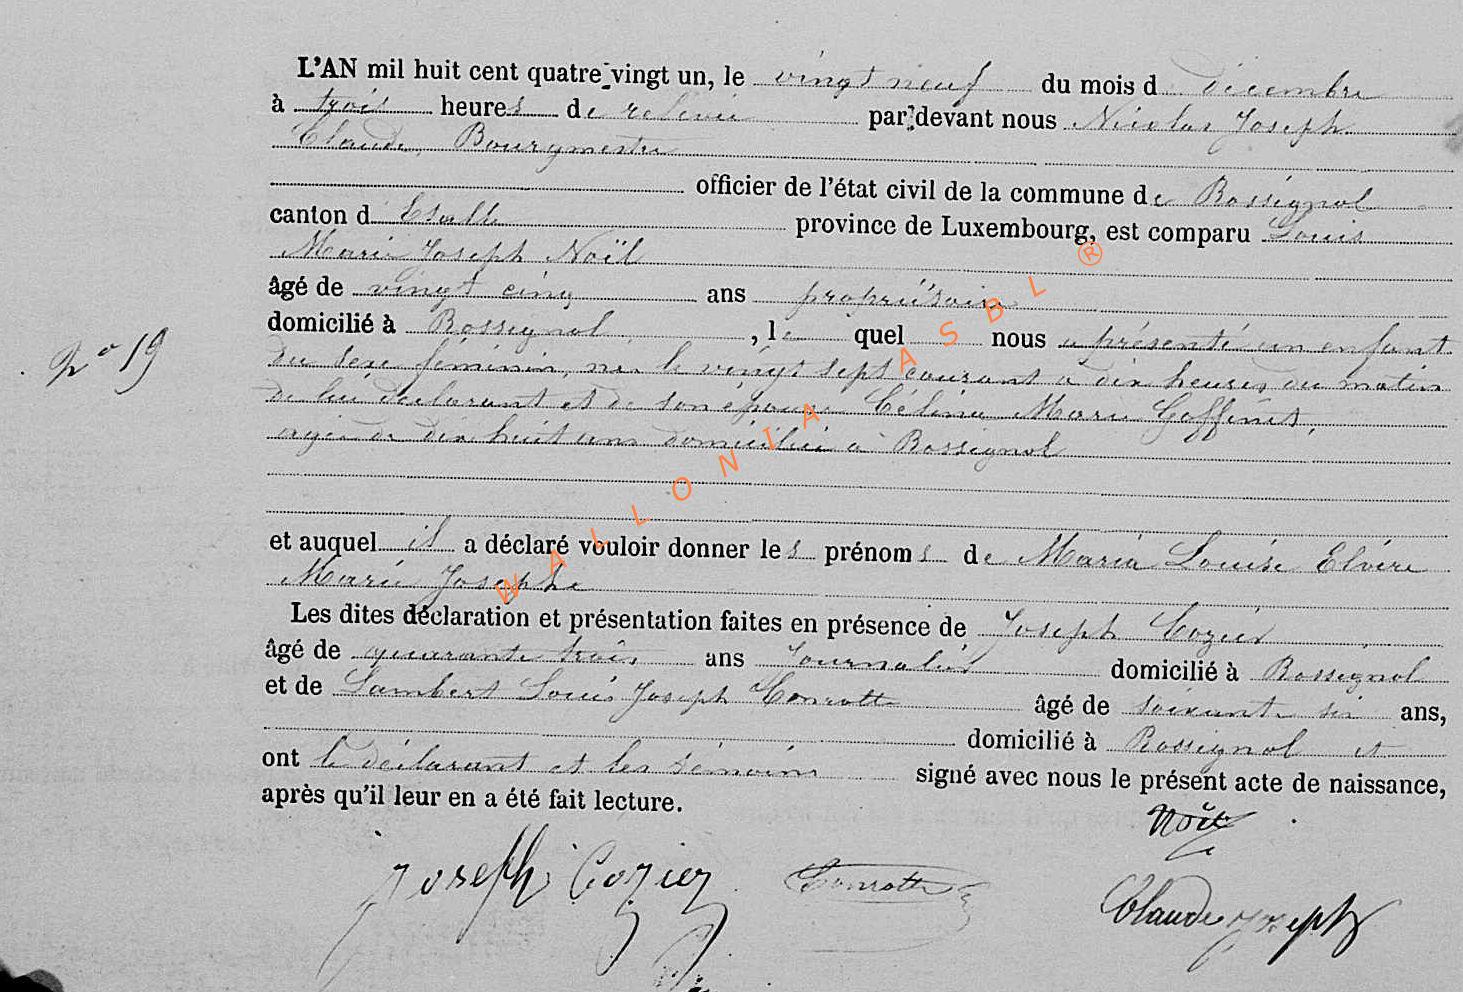 L'AN mil huit cent quatre-vingt un, le vingt neuf du mois d décembre
à trois heures de relevée par-devant nous Nicolas Joseph
Claude, Bourgmestre
officier de l'état civil de la commune de Rossignol
canton d'Etalle province de Luxembourg, est comparu Louis
Marie Joseph Noël
âgé de vingt cinq ans propriétaire
domicilié à Rossignol, le quel nous a présenté un enfant
du sexe féminin, née le vingt sept courant à dix heures du matin
de lui déclarant et de son épouse Célina Marie Goffinet,
agée de dix huit ans domiciliée à Rossignol
N° 19
et auquel il a déclaré vouloir donner les prénoms de Maria Louise Elvire
Marie Josephe
Les dites déclaration et présentation faites en présence de Joseph Cozier
âgé de quarante trois ans Journalier domicilié à Rossignol
et de Lambert Louis Joseph Conrotte âgé de soixante six ans,
domicilié à Rossignol et
ont le déclarant et les témoins signé avec nous le présent acte de naissance,
après qu'il leur en a été fait lecture.
Noël
Joseph Cozier Conrotte Claude Joseph
WALLONIA ASBL ®